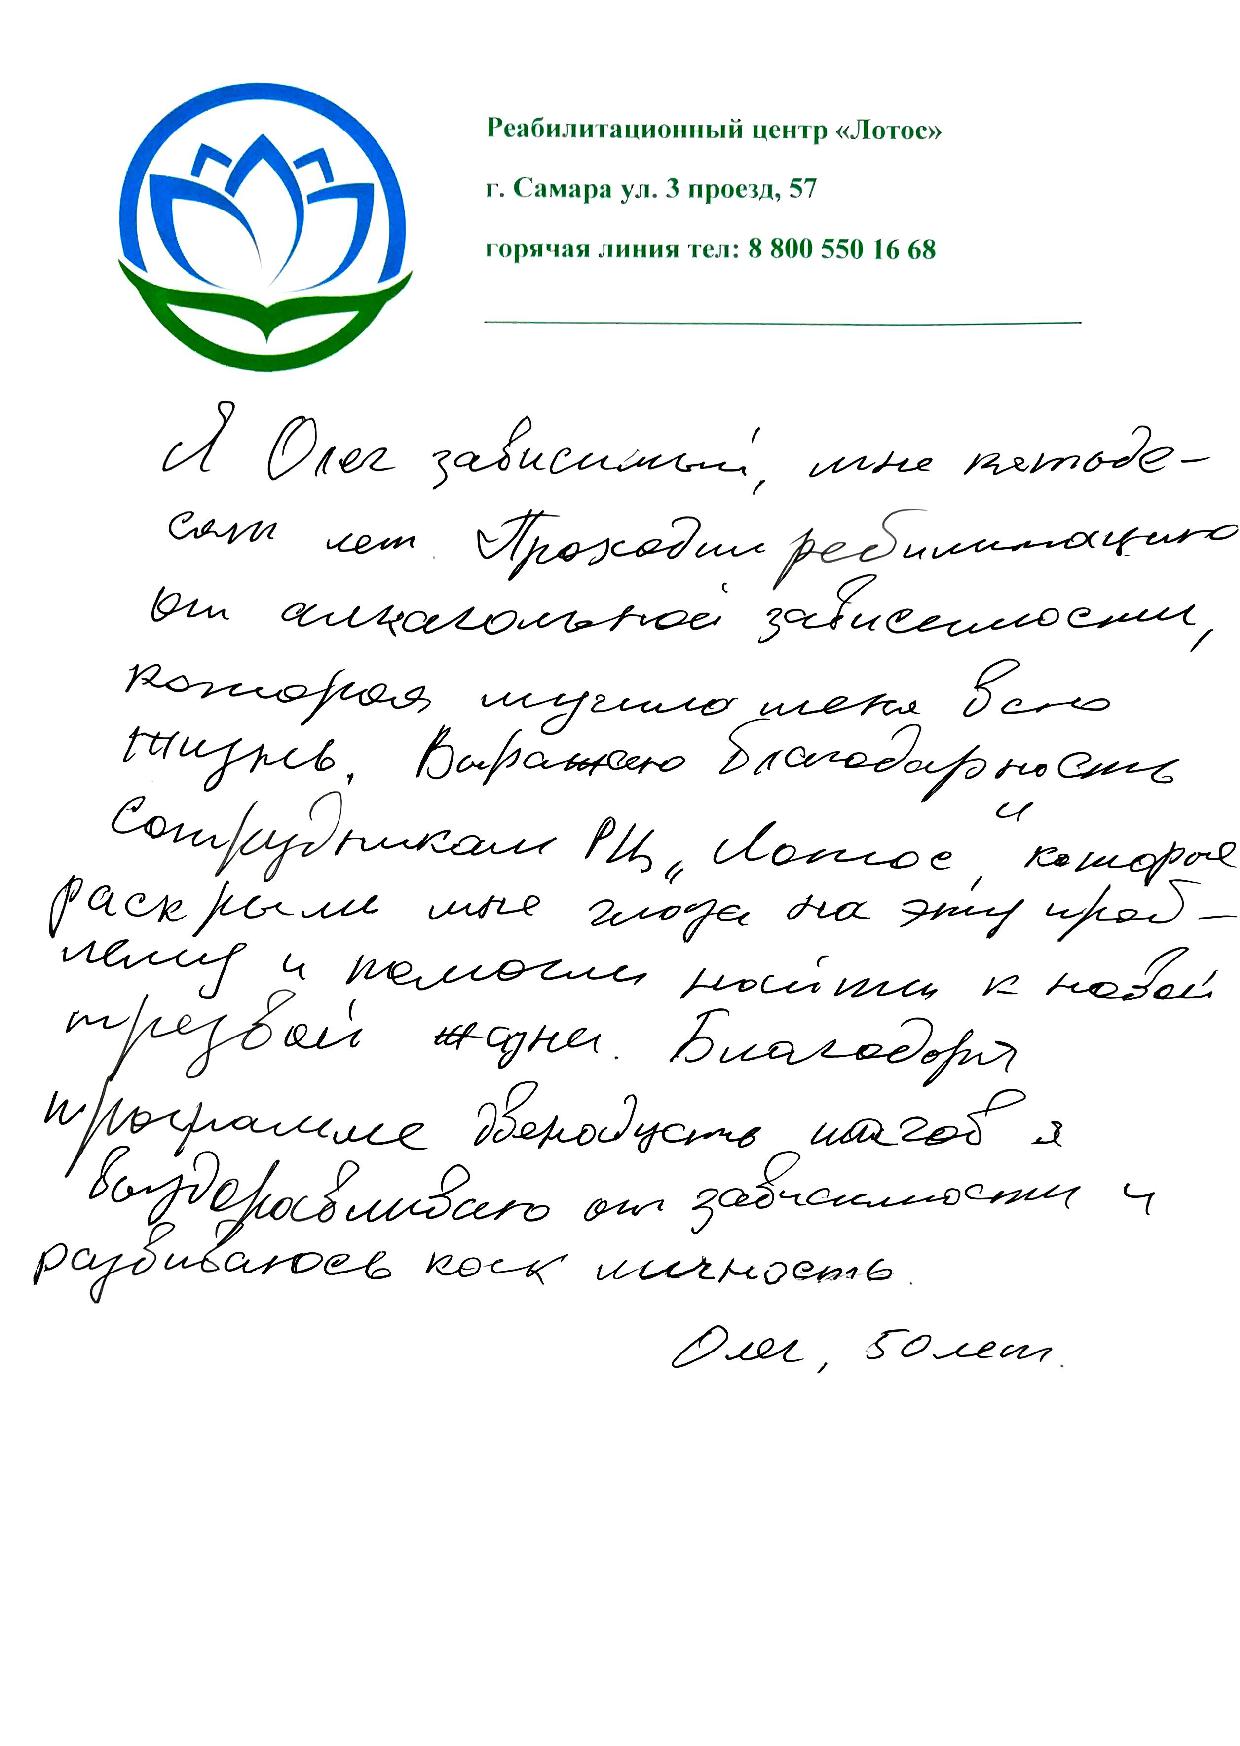 Реабилитационный центр «Лотос»
г. Самара ул. 3 проезд, 57
горячая линия тел: 8 800 550 16 68
Я Олег зависимый, мне пятьде-
сят лет. Проходил ребилитацию
от алкагольной зависимости,
которая мучила меня всю
жизнь. Выражаю благодарность
сотрудникам РЦ „Лотос", которые
раскрыли мне глаза на эту проб-
лему и помогли найти к новой
трезвой жизни. Благодоря
программе двенадцать шагов я
выздоравливаю от зависимости и
развиваюсь как личность.
Олег, 50 лет.